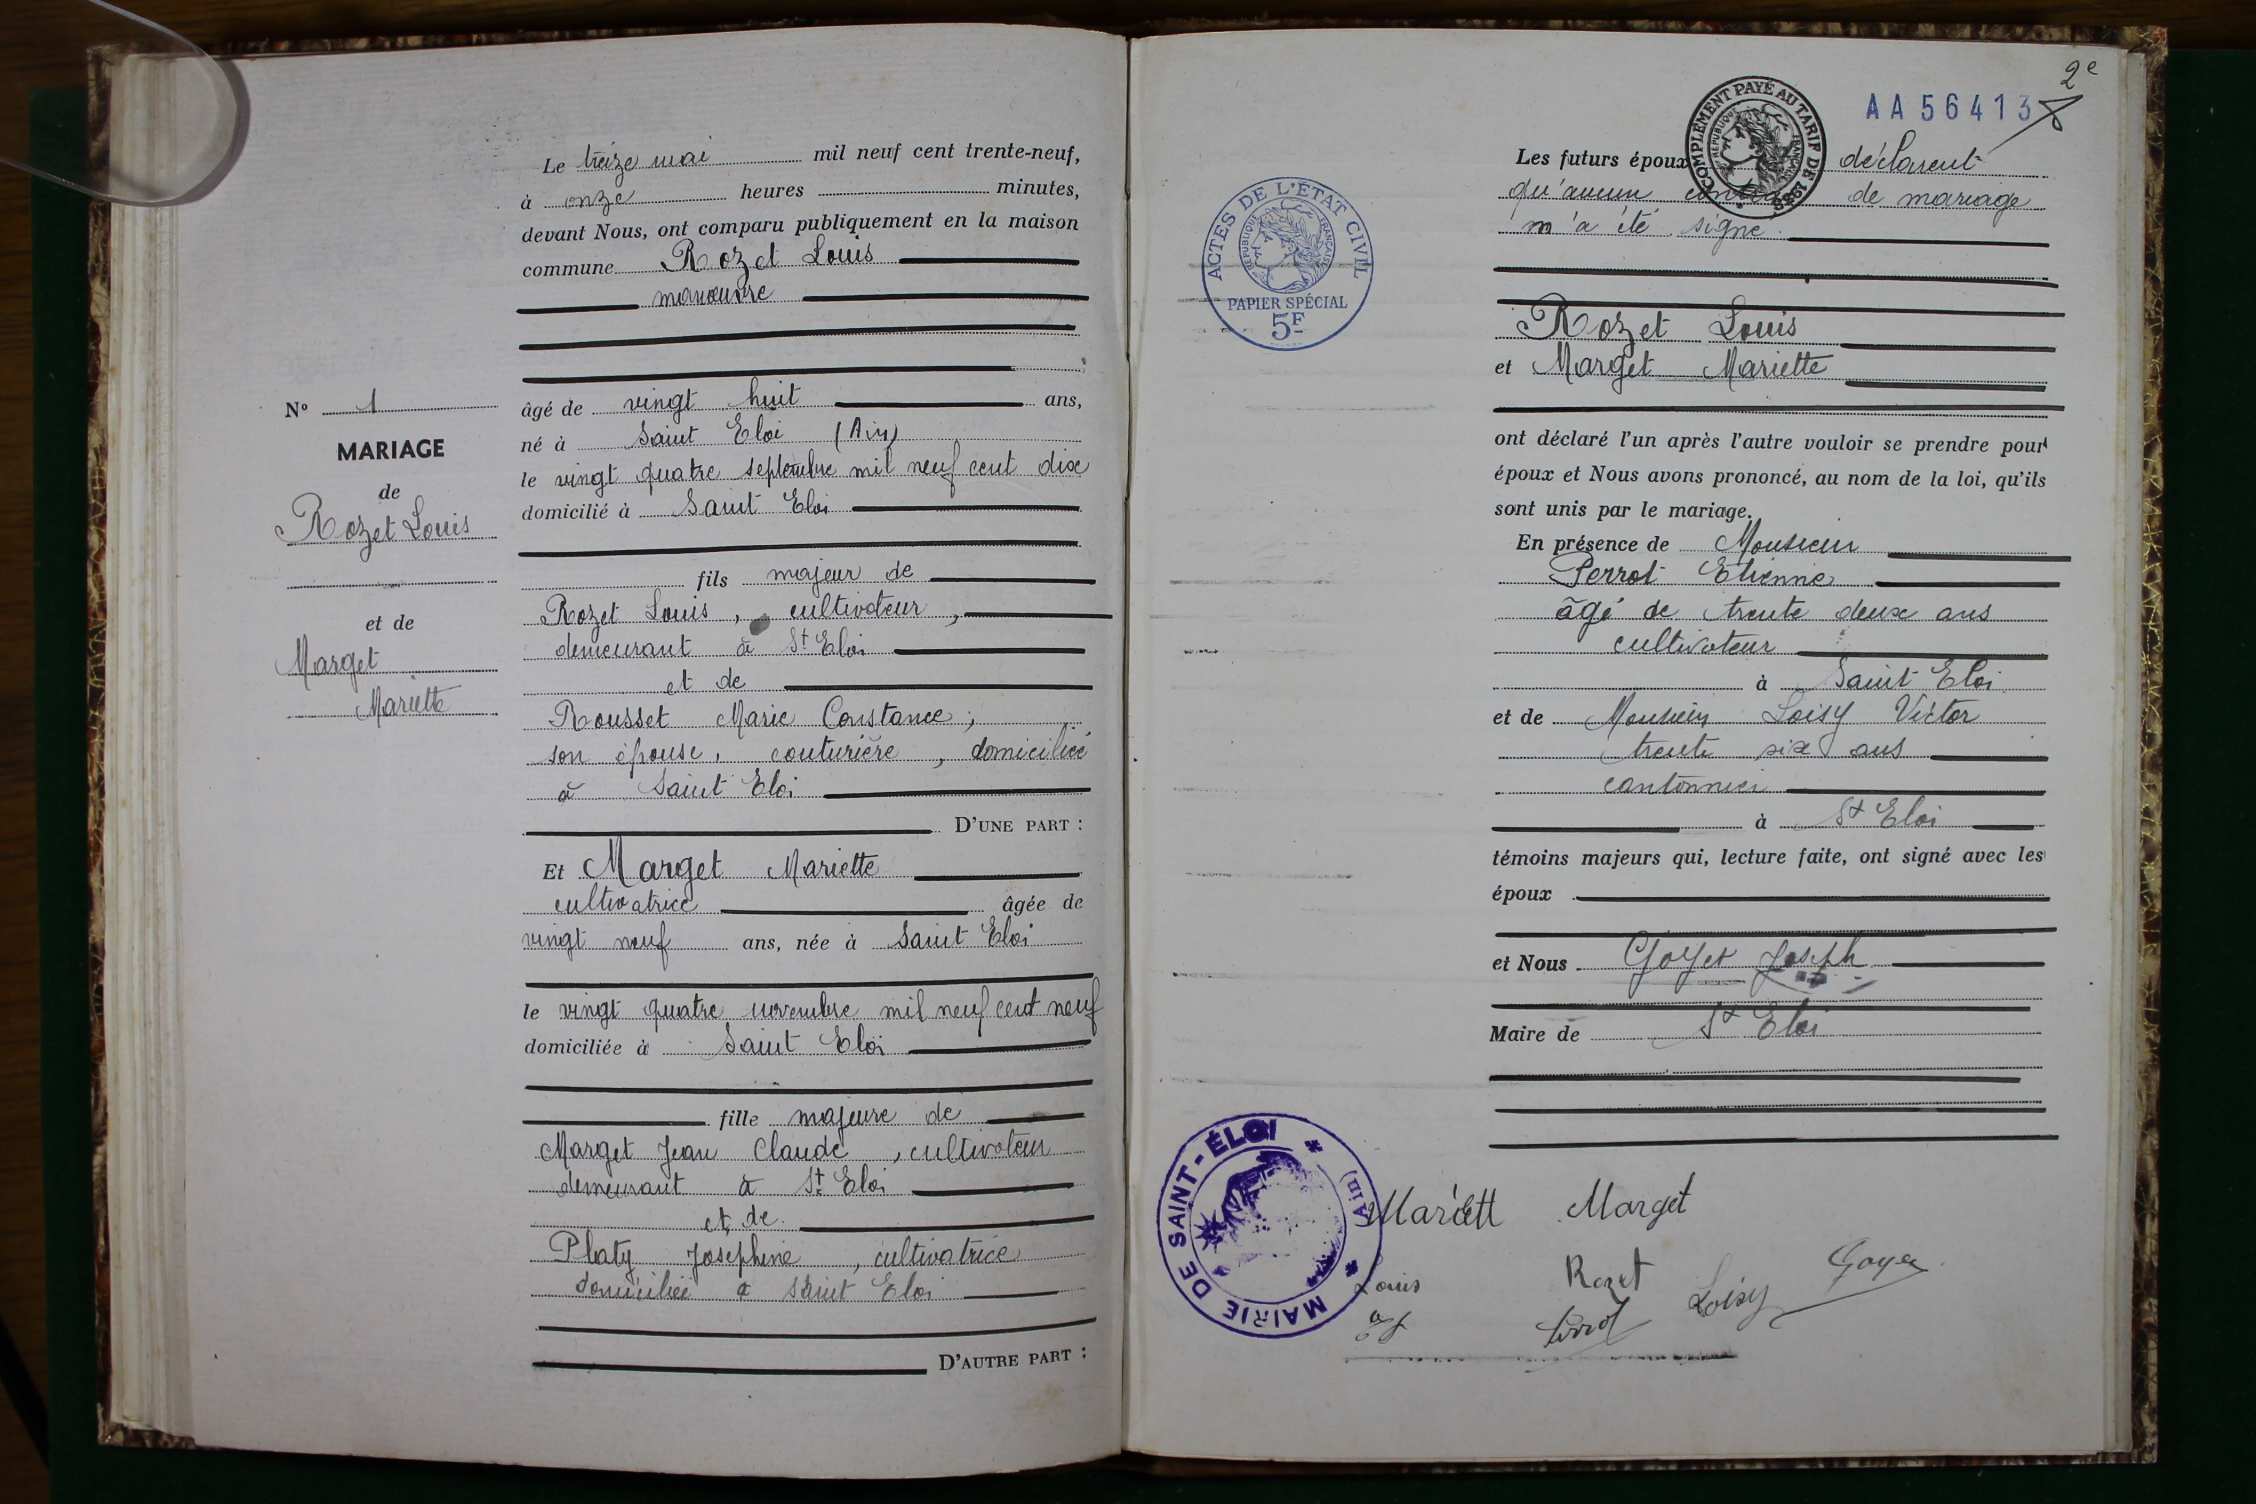 Le treize mai mil neuf cent trente-neuf,
à onze heures minutes,
devant Nous, ont comparu publiquement en la maison
commune Rozet Louis
manœuvre
N° 1
MARIAGE
de
Rozet Louis
et de
Marget
Mariette
âgé de vingt huit ans,
né à Saint Eloi (Ain)
le vingt quatre septembre mil neuf cent dix
domicilié à Saint Eloi
fils majeur de
Rozet Louis, cultivateur,
demeurant à St Eloi
et de
Rousset Marie Constance,
son épouse, couturière, domiciliée
à Saint Eloi
D'UNE PART :
Et Marget Mariette
cultivatrice âgée de
vingt neuf ans, née à Saint Eloi
le vingt quatre novembre mil neuf cent neuf
domiciliée à Saint Eloi
fille majeure de
Marget Jean Claude, cultivateur
demeurant à St Eloi
et de
Platy Josephine, cultivatrice
domiciliée à Saint Eloi
D'AUTRE PART :
2e
AA56413
COMPLÉMENT PAYÉ AU TARIF DE 1938
RÉPUBLIQUE FRANÇAISE
ACTES DE L'ÉTAT CIVIL
RÉPUBLIQUE FRANÇAISE
PAPIER SPÉCIAL
5F
Les futurs époux déclarent
qu'aucun contrat de mariage
n'a été signé.
Rozet Louis
et Marget Mariette
ont déclaré l'un après l'autre vouloir se prendre pour
époux et Nous avons prononcé, au nom de la loi, qu'ils
sont unis par le mariage.
En présence de Monsieur
Perrot Etienne
âgé de trente deux ans
cultivateur
à Saint Eloi
et de Monsieur Loisy Victor
trente six ans
cantonnier
à St Eloi
témoins majeurs qui, lecture faite, ont signé avec les
époux
et Nous Goyer Joseph
Maire de St Eloi
MAIRIE DE SAINT-ÉLOI * (Ain) *
Mariett Marget
Louis Rozet
Perrot Loisy Goyer